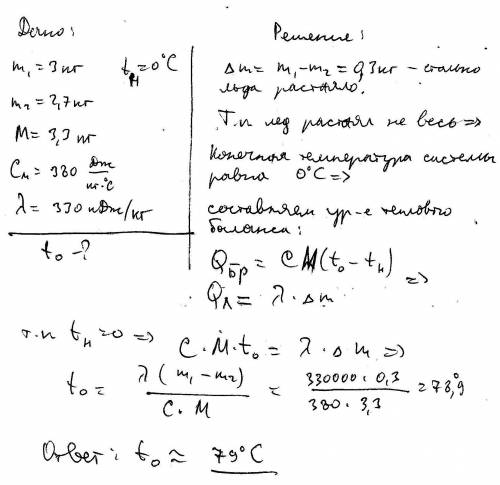 Дано:
m₁ = 3 кг   tн = 0°C
m₂ = 2,7 кг
M = 3,3 кг
Cм = 380 Дж/кг·°C
λ = 330 кДж/кг
t₀ - ?
Решение:
Δm = m₁ - m₂ = 0,3 кг – столько
льда растаяло.
Т.к лед растаял не весь =>
Конечная температура системы
равна 0°C =>
составляем ур-е теплового
баланса:
Qбр = CM(t₀ - tн)
=>
Qл = λ · Δm
т.к tн = 0 => C · M · t₀ = λ · Δm =>
t₀ = λ(m₁ - m₂) / C · M = 330000 · 0,3 / 380 · 3,3 = 78,9°
Ответ: t₀ ≈ 79°C